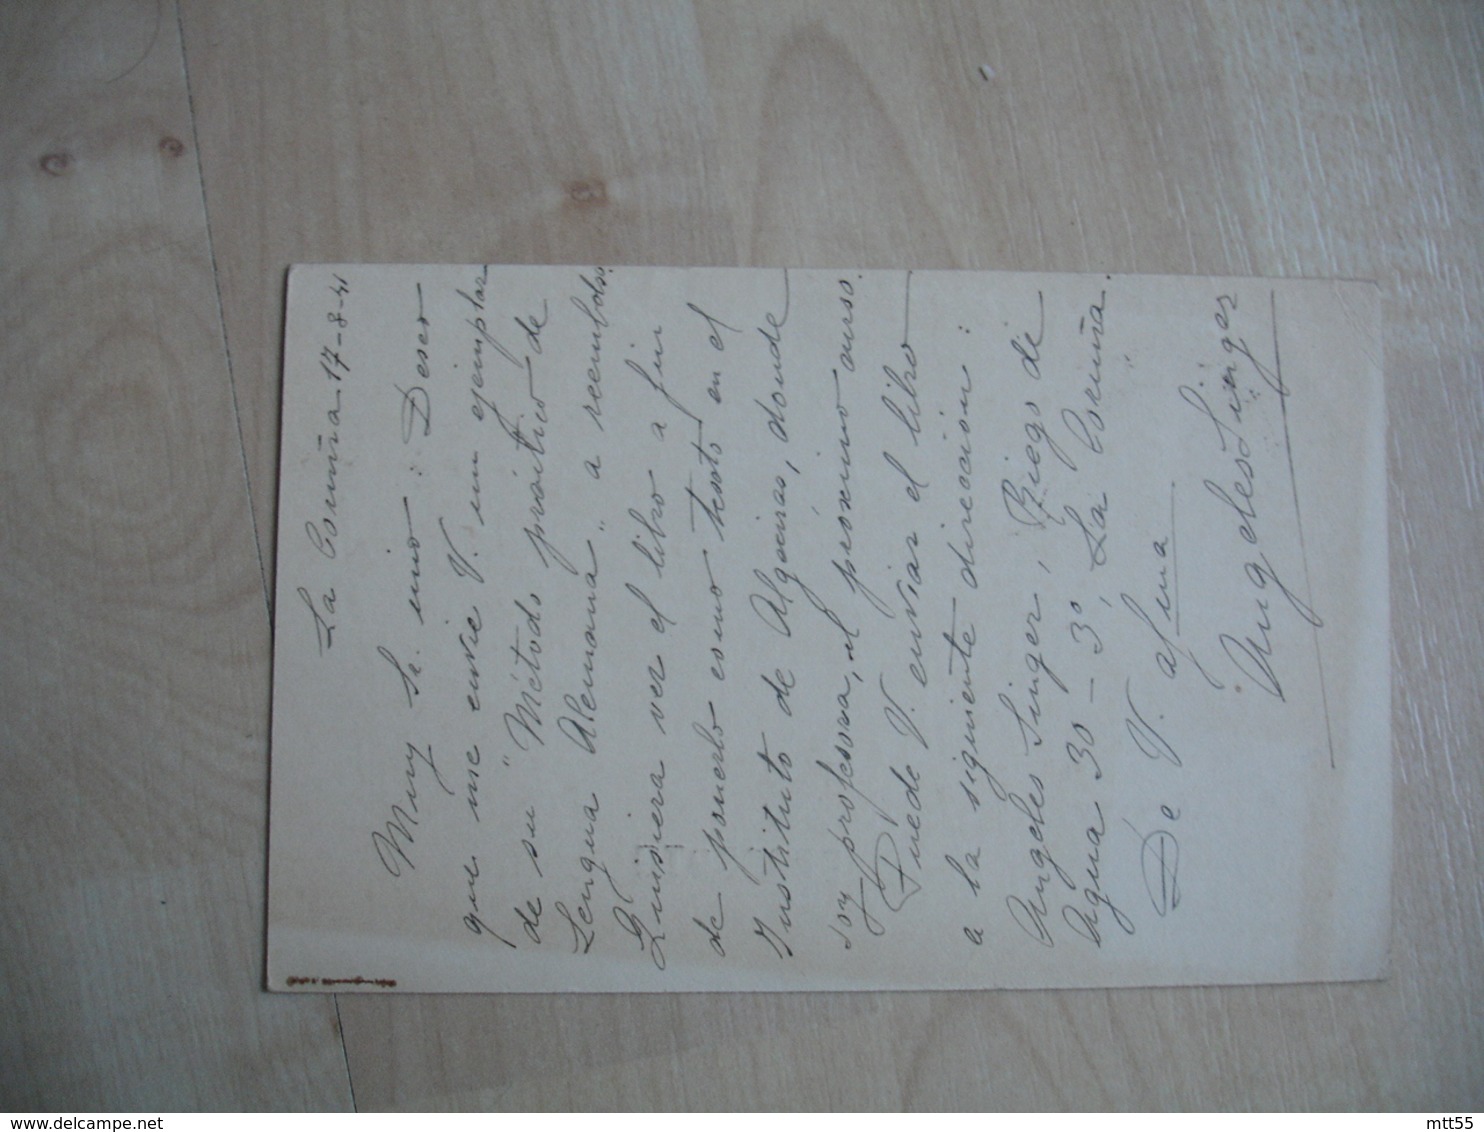 La Coruña 17-8-41
Muy Sr. mio: Deseo
que me envie V. un ejemplar
de su "Método práctico de
Lengua Alemana" a reembolso.
Quisiera ver el libro a fin
de ponerlo como texto en el
Instituto de Algeciras, donde
soy profesora, el próximo curso.
Puede V. enviar el libro
a la siguiente dirección:
Angeles Singer, Riego de
Agua 30-3º, La Coruña.
De V. afma.
Angeles Singer
mtt55